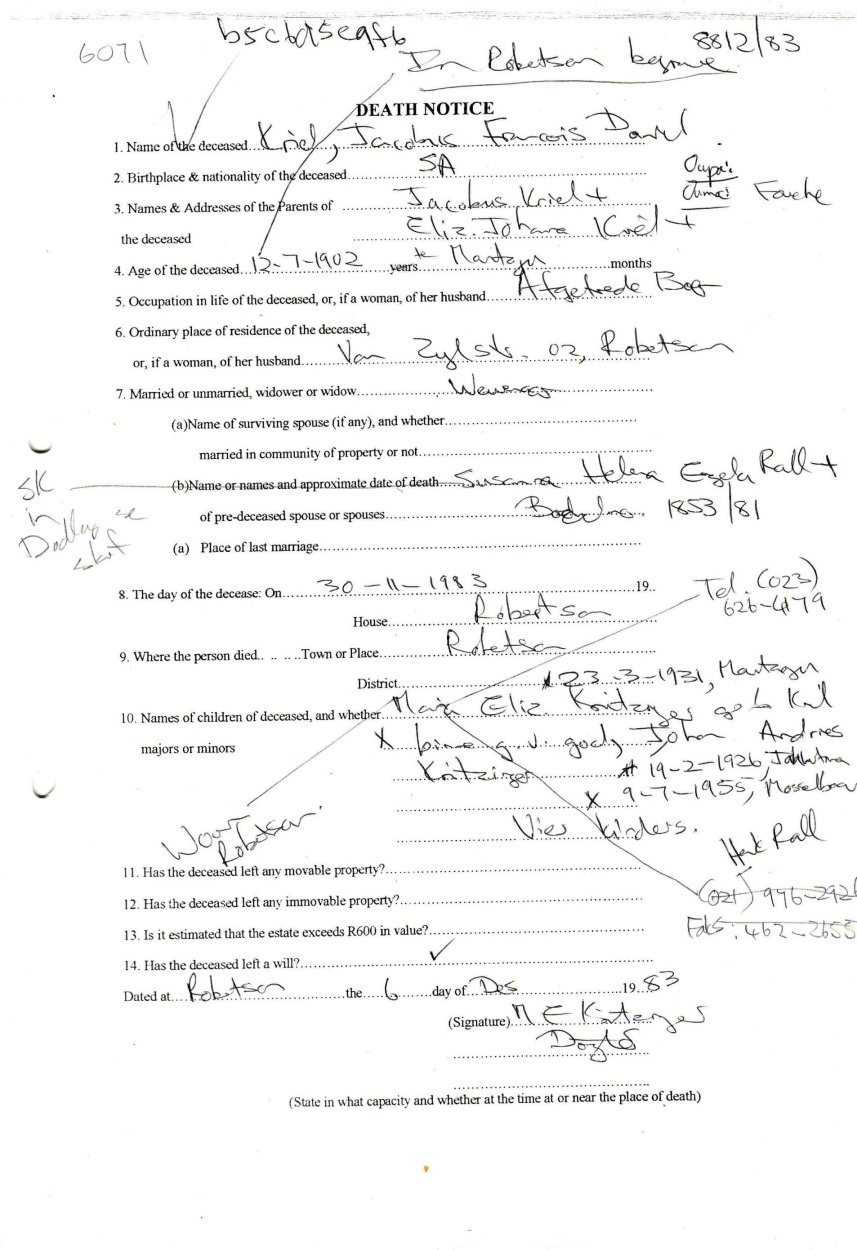 6071
b5c6d15eqf6
8812/83
In Robertson begrawe
DEATH NOTICE
1. Name of the deceased Kriel, Jacobus Francois Daniel
2. Birthplace & nationality of the deceased SA
Oupa:
Ouma: Fouche
3. Names & Addresses of the Parents of Jacobus Kriel +
the deceased Eliz. Johana Kriel +
4. Age of the deceased 12-7-1902 years te months
5. Occupation in life of the deceased, or, if a woman, of her husband Afgetrede
6. Ordinary place of residence of the deceased,
or, if a woman, of her husband Van Zylstr. 02, Robertson
7. Married or unmarried, widower or widow Wewenaar
(a)Name of surviving spouse (if any), and whether
married in community of property or not
SK
in
(b)Name or names and approximate date of death Susanna Helena Rall +
of pre-deceased spouse or spouses 1853/81
(a) Place of last marriage
8. The day of the decease: On 30-11-1983 19..
Tel. (023)
626-4179
House Robertson
9. Where the person died.. .. ..Town or Place Robertson
District * 23-3-1931,
10. Names of children of deceased, and whether Maria Eliz. Kritzinger geb Kriel
majors or minors X binne g.v. goed, Johan Andries
Kritzinger * 19-2-1926,
X 9-7-1955, Mosselbaai
Vier kinders.
Woon
Robertson.
Henk Rall
(021) 996-2926
Faks: 462-2655
11. Has the deceased left any movable property?
12. Has the deceased left any immovable property?
13. Is it estimated that the estate exceeds R600 in value?
14. Has the deceased left a will? ✓
Dated at Robertson the 6 day of Des 1983
(Signature) M E Kritzinger
Dogter
(State in what capacity and whether at the time at or near the place of death)